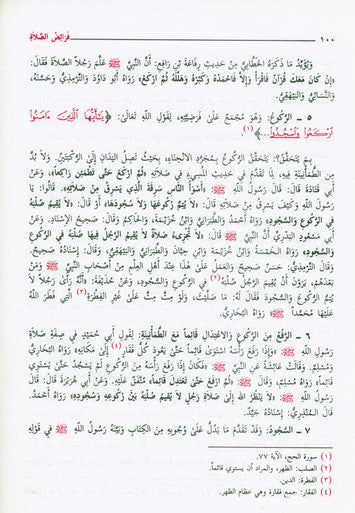 ١٠٠ فرائض الصلاة
ويؤيد ما ذكره الخطابي من حديث رفاعة بن رافع: أن النبي ﷺ علم رجلاً الصلاة فقال:
«إن كان معك قرآن فاقرأ وإلا فاحمده وكبره وهلله ثم اركع»، رواه أبو داود والترمذي وحسنه،
والنسائي والبيهقي.
٥ ـ الركوع: وهو مجمع على فرضيته، لقول الله تعالى: ﴿يَٰٓأَيُّهَا ٱلَّذِينَ ءَامَنُوا۟
ٱرْكَعُوا۟ وَٱسْجُدُوا۟...﴾(١).
بم يتحقق؟: يتحقق الركوع بمجرد الانحناء، بحيث تصل اليدان إلى الركبتين، ولا بد
من الطمأنينة فيه، لما تقدم في حديث المسيء في صلاته «ثم اركع حتى تطمئن راكعاً»، وعن
أبي قتادة قال: قال رسول الله ﷺ: «أسوأ الناس سرقة الذي يسرق من صلاته»، قالوا: يا
رسول الله وكيف يسرق من صلاته؟ قال: «لا يتم ركوعها ولا سجودها» أو قال: «لا يقيم صلبه
في الركوع والسجود» رواه أحمد والطبراني وابن خزيمة، والحاكم وقال: صحيح الإسناد. وعن
أبي مسعود البدري أن النبي ﷺ قال: «لا تجزىء صلاة لا يقيم الرجل فيها صلبه في الركوع
والسجود» رواه الخمسة وابن خزيمة وابن حبان والطبراني والبيهقي، وقال: إسناده صحيح،
وقال الترمذي: حسن صحيح والعمل على هذا عند أهل العلم من أصحاب النبي ﷺ ومن
بعدهم، يرون أن يقيم الرجل صلبه(٢) في الركوع والسجود، وعن حذيفة: «أنه رأى رجلاً لا
يتم الركوع والسجود فقال له: ما صليت، ولو مت مت على غير الفطرة(٣) التي فطر الله
عليها محمداً ﷺ» رواه البخاري.
٦ ـ الرفع من الركوع والاعتدال قائماً مع الطمأنينة: لقول أبي حميد في صفة صلاة
رسول الله ﷺ: «وإذا رفع رأسه استوى قائماً حتى يعود كل فقار(٤) إلى مكانه» رواه البخاري
ومسلم. وقالت عائشة عن النبي ﷺ: «فكان إذا رفع رأسه من الركوع لم يسجد حتى يستوي
قائماً» رواه مسلم. وقال ﷺ: «ثم ارفع حتى تعتدل قائماً» متفق عليه. وعن أبي هريرة قال: قال
رسول الله ﷺ: «لا ينظر الله إلى صلاة رجل لا يقيم صلبه بين ركوعه وسجوده» رواه أحمد.
قال المنذري: إسناده جيد.
٧ ـ السجود: وقد تقدم ما يدل على وجوبه من الكتاب وبينه رسول الله ﷺ في قوله
(١) سورة الحج، الآية ٧٧.
(٢) الصلب: الظهر، والمراد أن يستوي قائماً.
(٣) الفطرة: الدين.
(٤) الفقار: جمع فقارة وهي عظام الظهر.